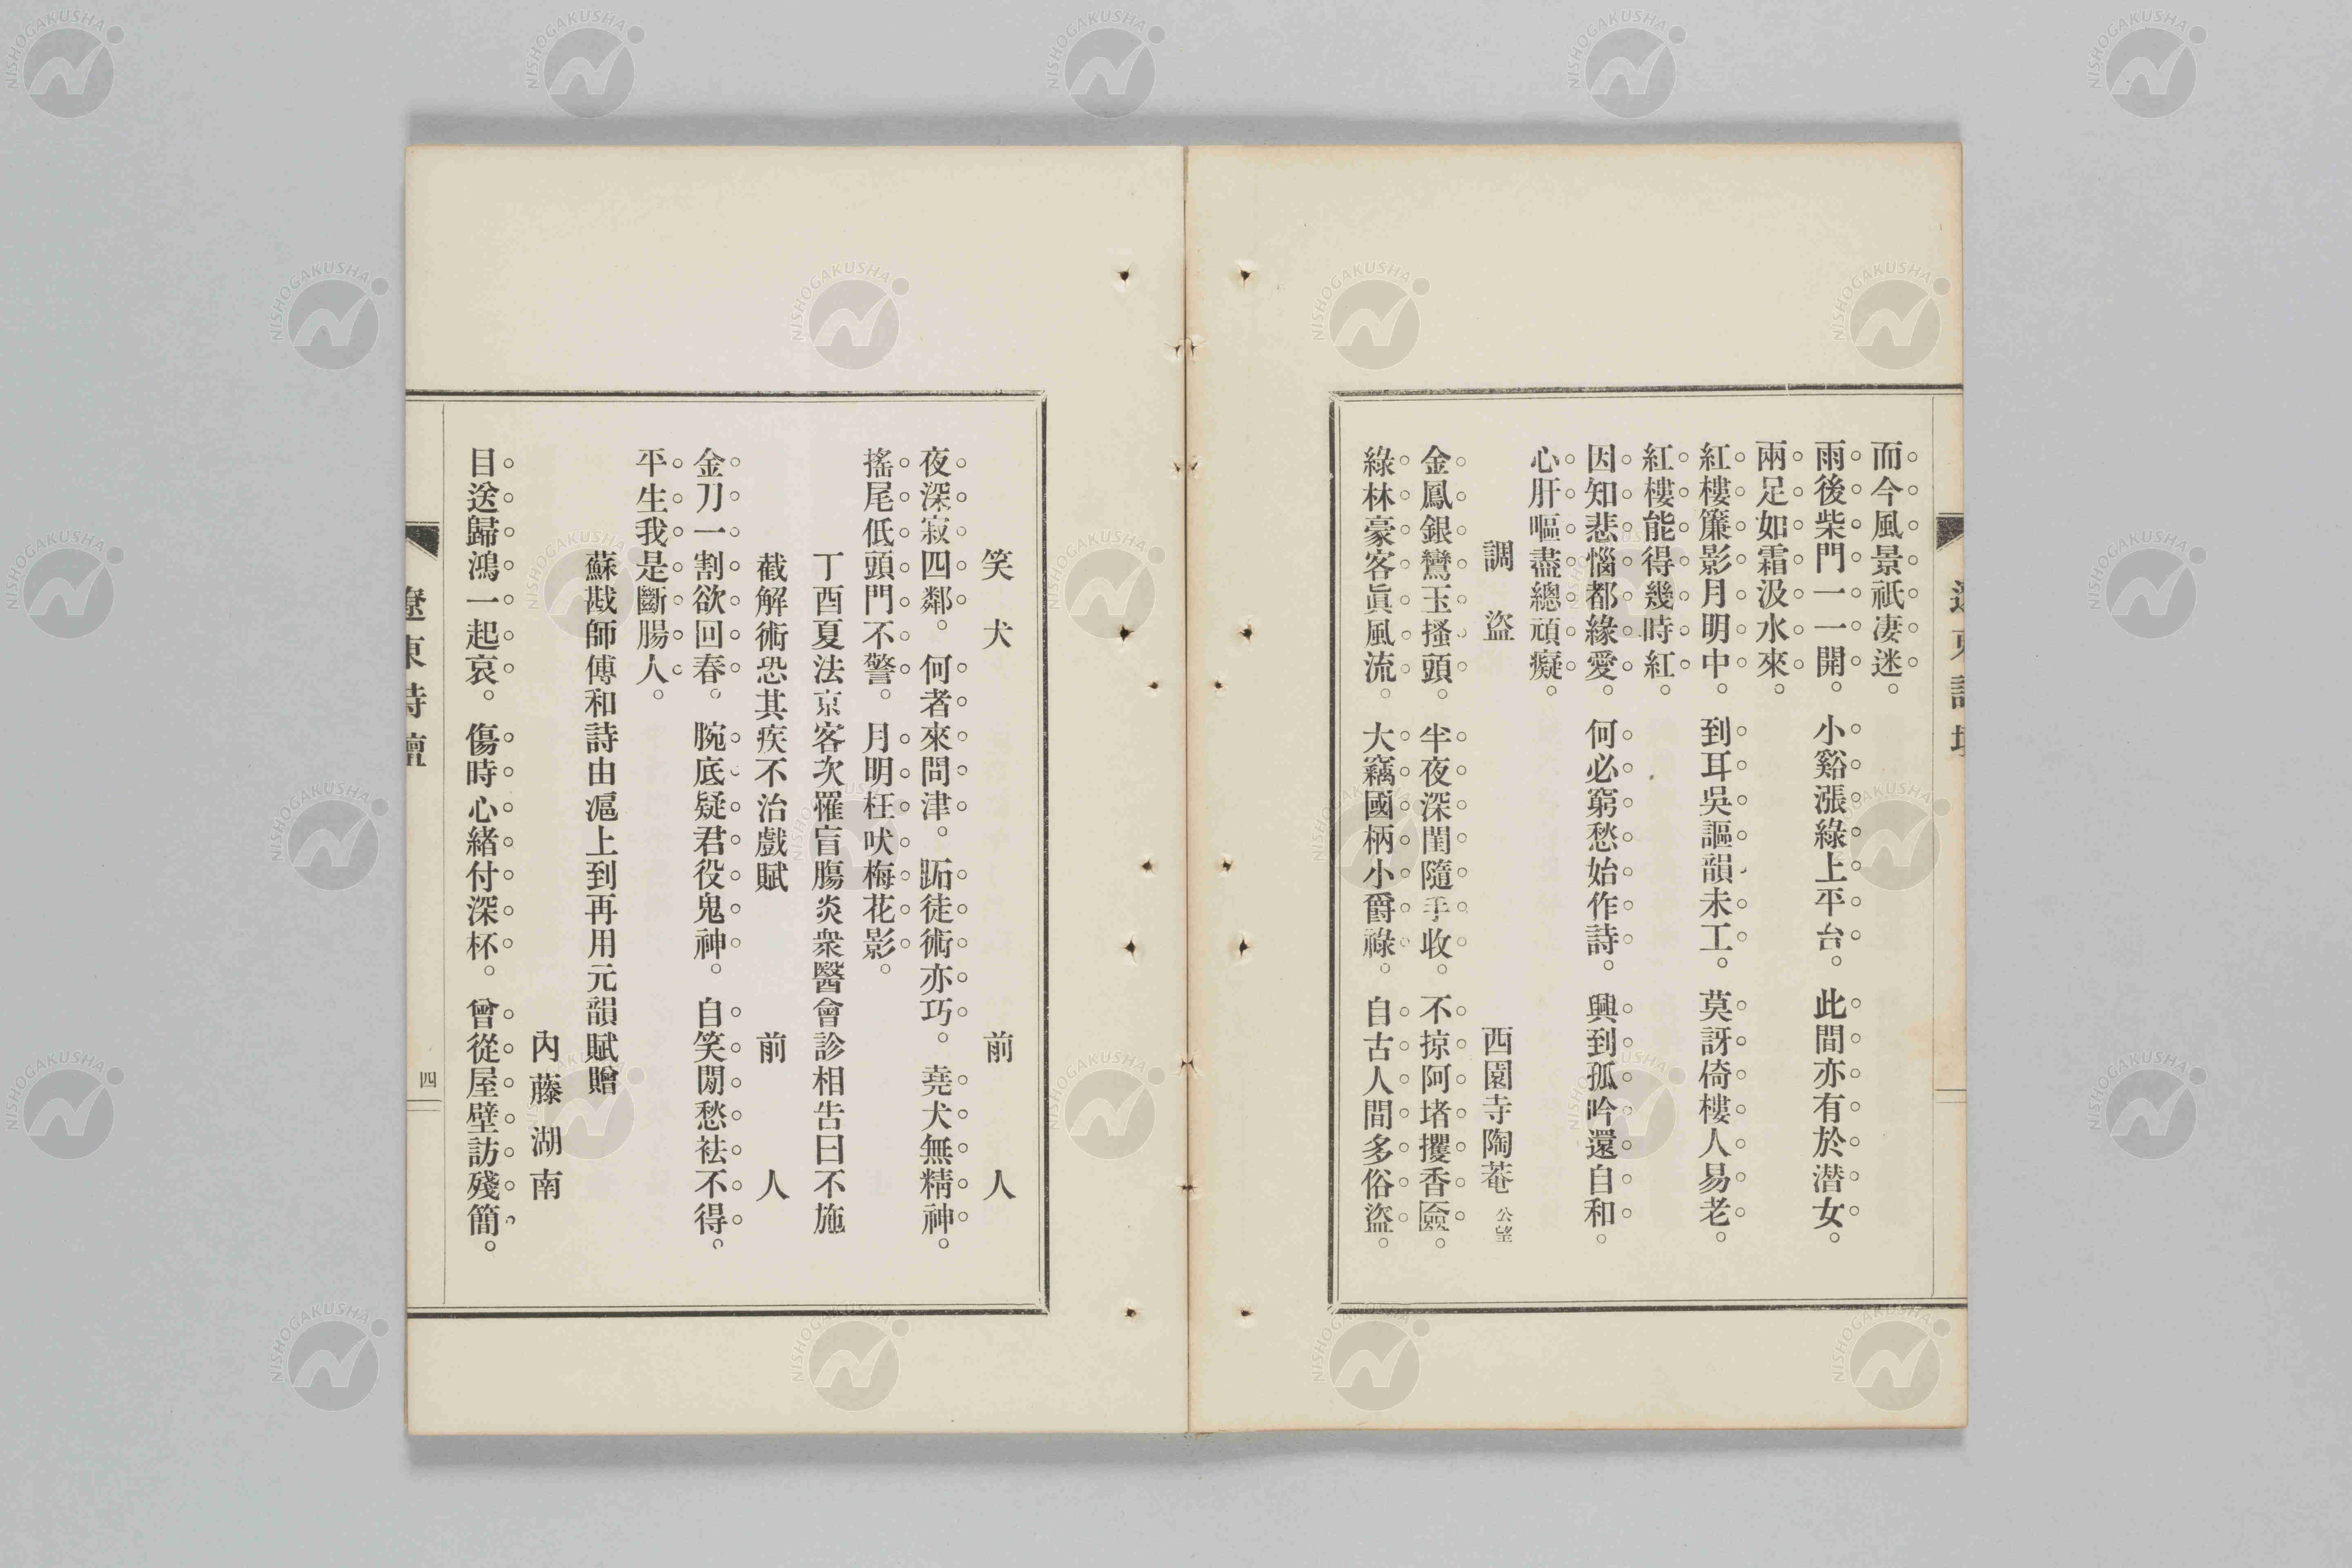 而今風景祇凄迷。
雨後柴門一一開。小谿漲綠上平台。此間亦有於潜女。
兩足如霜汲水來。
紅樓簾影月明中。到耳吳謳韻未工。莫訝倚樓人易老。
紅樓能得幾時紅。
因知悲惱都緣愛。何必窮愁始作詩。興到孤吟還自和。
心肝嘔盡總頑癡。
調盜　西園寺陶菴 公望
金鳳銀鸞玉搔頭。半夜深閨隨手收。不掠阿堵攫香匳。
綠林豪客眞風流。大竊國柄小爵祿。自古人間多俗盜。
笑犬　前人
夜深寂四鄰。何者來問津。跖徒術亦巧。堯犬無精神。
搖尾低頭門不警。月明枉吠梅花影。
丁酉夏法京客次罹盲膓炎衆醫會診相告曰不施
截解術恐其疾不治戲賦　前人
金刀一割欲回春。腕底疑君役鬼神。自笑閒愁袪不得。
平生我是斷腸人。
蘇戡師傅和詩由滬上到再用元韻賦贈
內藤湖南
目送歸鴻一起哀。傷時心緒付深杯。曾從屋壁訪殘簡。
遼東詩壇
四
NISHOGAKUSHA